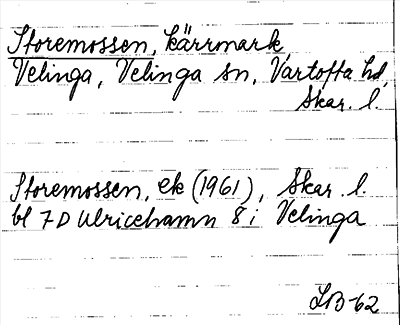 Storemossen, kärrmark
Velinga, Velinga sn, Vartofta hd,
Skar. l.
Storemossen, ek (1961), Skar. l.
bl 7D Ulricehamn 8 i Velinga
LB-62